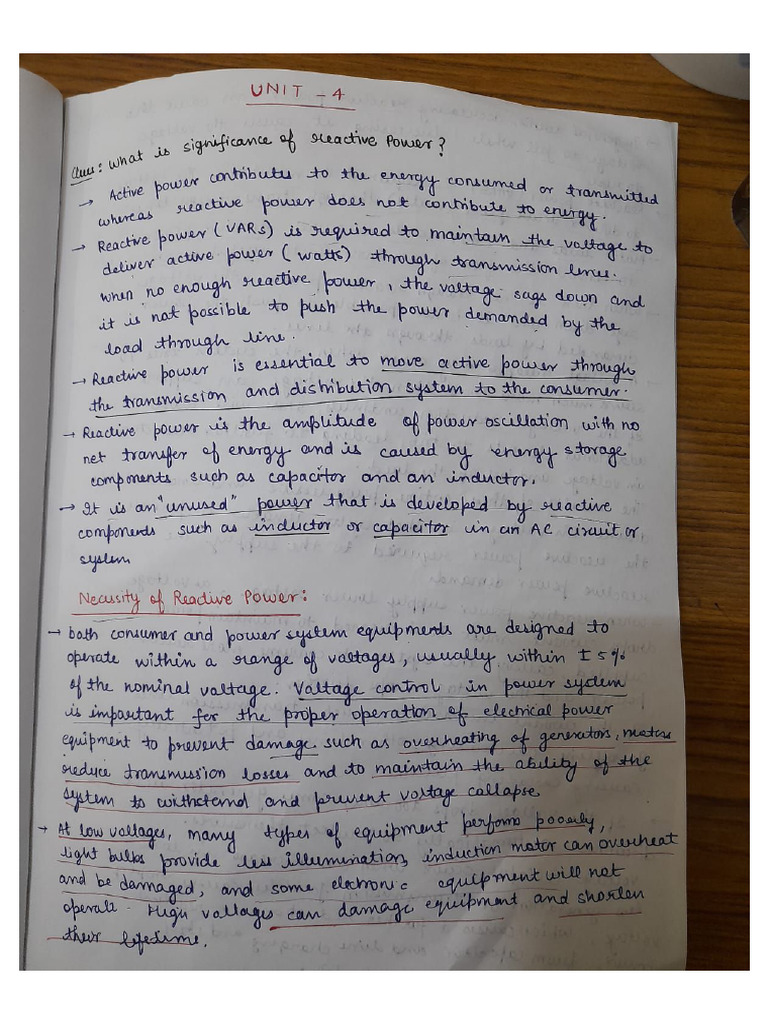 UNIT - 4
Ques: What is significance of reactive Power?
→ Active power contributes to the energy consumed or transmitted
whereas reactive power does not contribute to energy.
→ Reactive power (VARs) is required to maintain the voltage to
deliver active power (watts) through transmission lines.
when no enough reactive power, the voltage sags down and
it is not possible to push the power demanded by the
load through line.
→ Reactive power is essential to move active power through
the transmission and distribution system to the consumer.
→ Reactive power is the amplitude of power oscillation with no
net transfer of energy and is caused by energy storage
components such as capacitor and an inductor.
→ It is an "unused" power that is developed by reactive
components such as inductor or capacitor in an AC circuit or
system
Necessity of Reactive Power:
→ both consumer and power system equipments are designed to
operate within a range of voltages, usually within ± 5%
of the nominal voltage. Voltage control in power system
is important for the proper operation of electrical power
equipment to prevent damage such as overheating of generators, motors
reduce transmission losses and to maintain the ability of the
system to withstand and prevent voltage collapse.
→ At low voltages, many types of equipment performs poorly,
light bulbs provide less illumination, induction motor can overheat
and be damaged, and some electronic equipment will not
operate. High voltages can damage equipment and shorten
their lifetime.